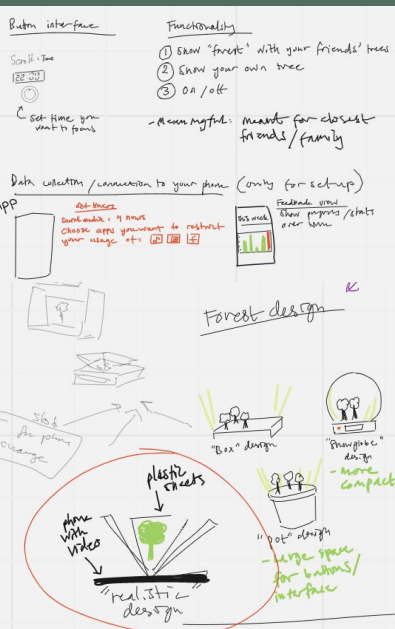 Button interface
Scroll: Time
22:00
Set time you
want to focus
Functionality
① Show "forest" with your friends' trees
② Show your own tree
③ On/off
- Meaningful: meant for closest
friends/family
Data collection/connection to your phone (only for setup)
APP
Set timers
Social media: 4 hours
Choose apps you want to restrict
your usage of:
This week
Feedback view
Show progress/stats
over time
Forest design
Slot
for phone
"Box" design
"Snowglobe"
design
- more
compact
"Pot" design
- Large space
for buttons/
interface
plastic
sheets
phone
with
video
"realistic
design"